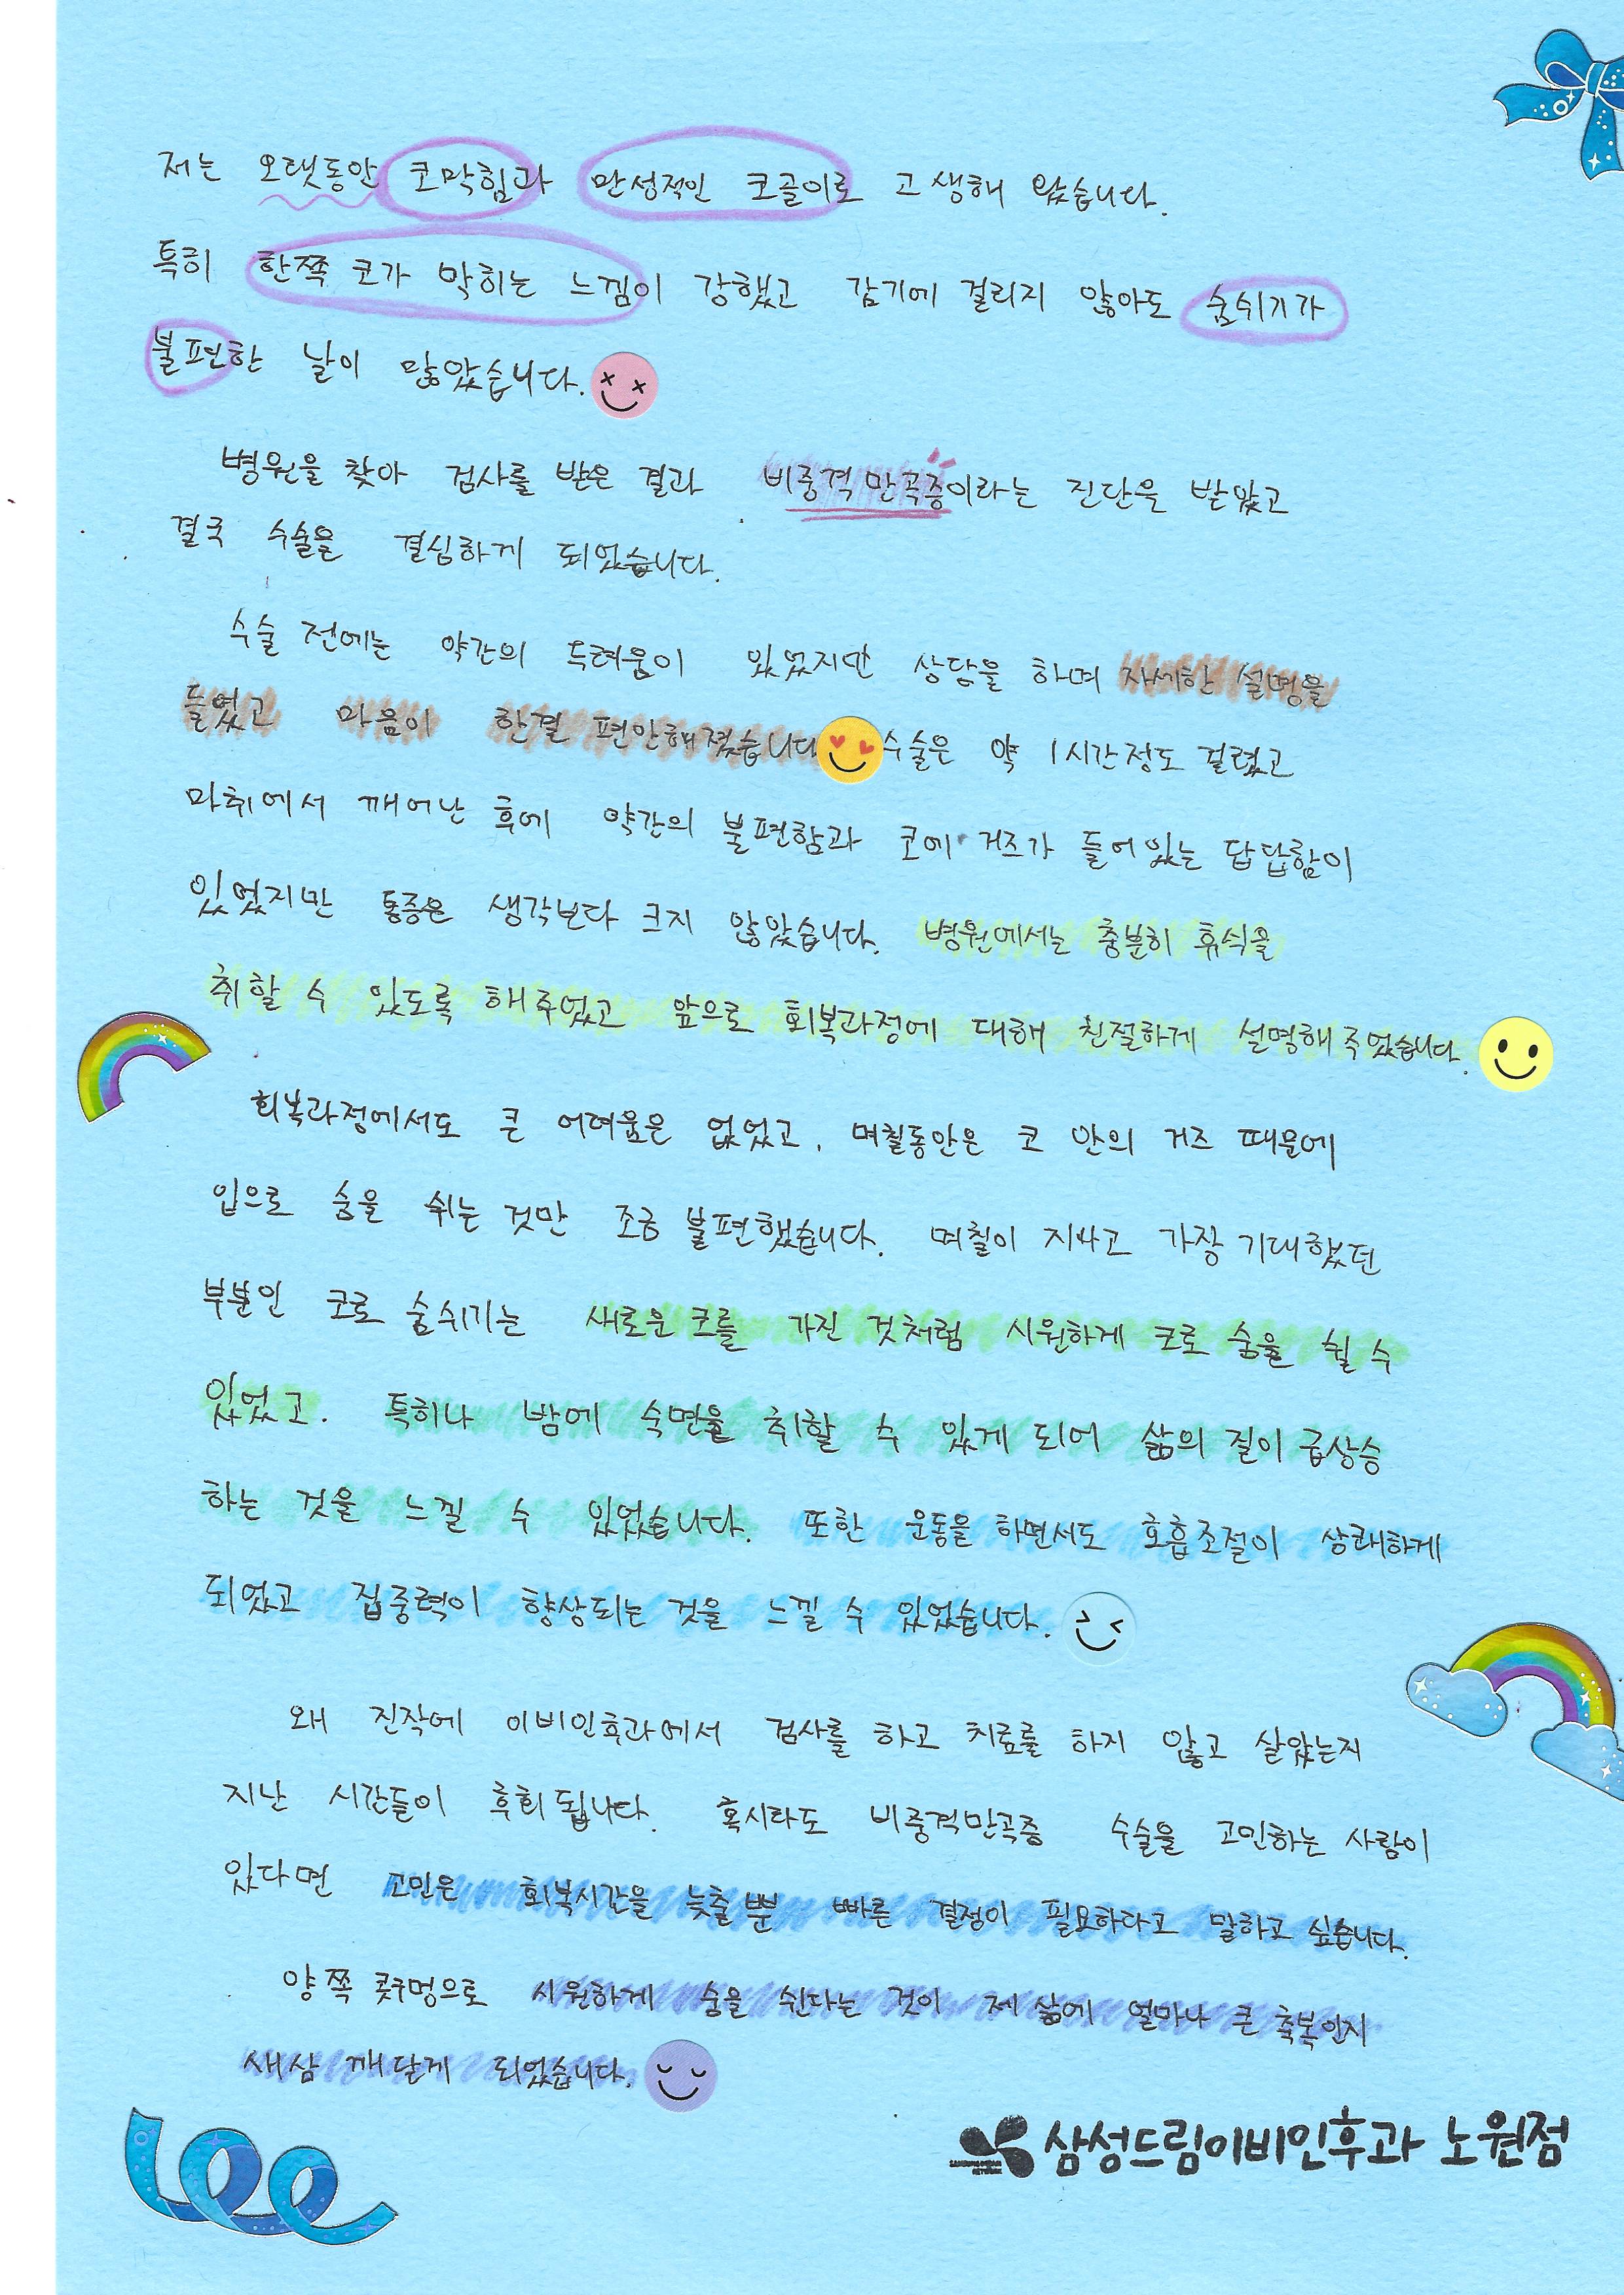 저는 오랫동안 코막힘과 만성적인 코골이로 고생해 왔습니다.
특히 한쪽 코가 막히는 느낌이 강했고 감기에 걸리지 않아도 숨쉬기가
불편한 날이 많았습니다.
병원을 찾아 검사를 받은 결과 비중격만곡증이라는 진단을 받았고
결국 수술을 결심하게 되었습니다.
수술 전에는 약간의 두려움이 있었지만 상담을 하며 자세한 설명을
들었고 마음이 한결 편안해졌습니다 수술은 약 1시간정도 걸렸고
마취에서 깨어난 후에 약간의 불편함과 코에 거즈가 들어있는 답답함이
있었지만 통증은 생각보다 크지 않았습니다. 병원에서는 충분히 휴식을
취할 수 있도록 해주었고 앞으로 회복과정에 대해 친절하게 설명해주었습니다.
회복과정에서도 큰 어려움은 없었고, 며칠동안은 코 안의 거즈 때문에
입으로 숨을 쉬는 것만 조금 불편했습니다. 며칠이 지나고 가장 기대했던
부분인 코로 숨쉬기는 새로운 코를 가진 것처럼 시원하게 코로 숨을 쉴 수
있었고. 특히나 밤에 숙면을 취할 수 있게 되어 삶의 질이 급상승
하는 것을 느낄 수 있었습니다. 또한 운동을 하면서도 호흡조절이 상쾌하게
되었고 집중력이 향상되는 것을 느낄 수 있었습니다.
왜 진작에 이비인후과에서 검사를 하고 치료를 하지 않고 살았는지
지난 시간들이 후회됩니다. 혹시라도 비중격만곡증 수술을 고민하는 사람이
있다면 고민은 회복시간을 늦출뿐 빠른 결정이 필요하다고 말하고 싶습니다.
양쪽 콧구멍으로 시원하게 숨을 쉰다는 것이 제 삶에 얼마나 큰 축복인지
새삼 깨닫게 되었습니다.
삼성드림이비인후과 노원점